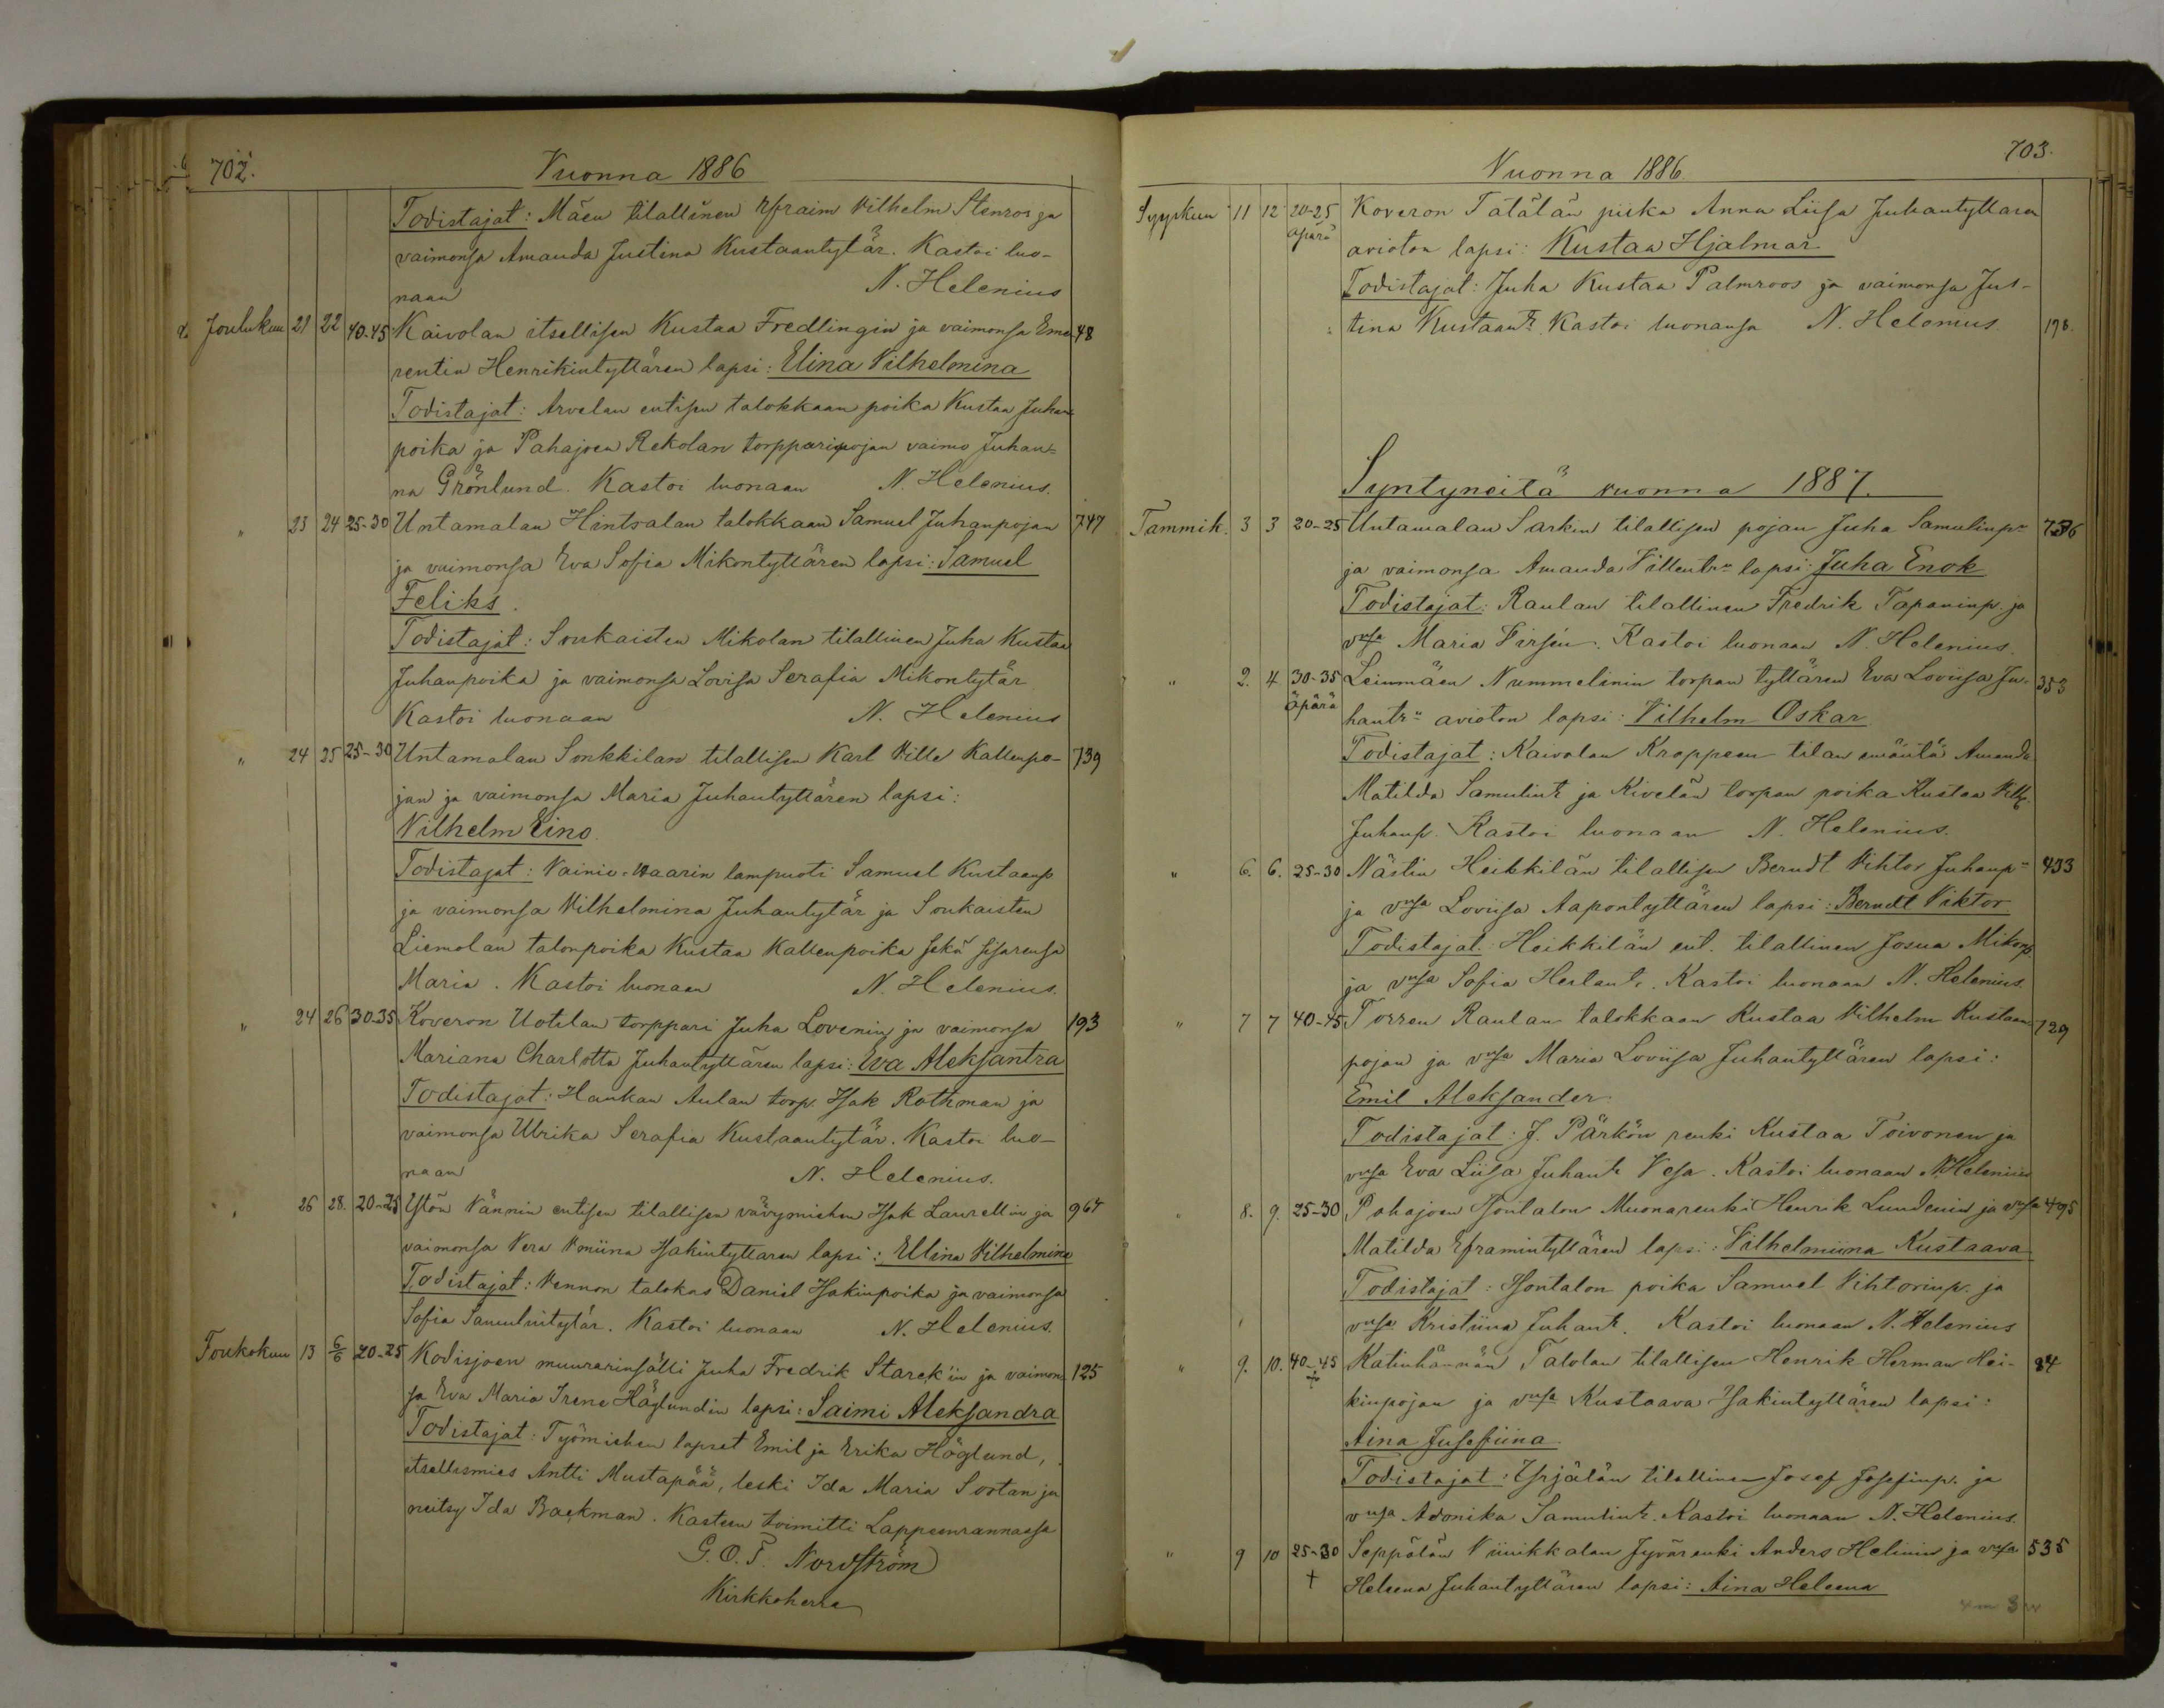 702.
Vuonna 1886
Todistajat: Mäen tilallinen Efraim Vilhelm Stenros ja
vaimonsa Amanda Justina Kustaantytär. Kastoi luo-
naan N. Helenius
Joulukuu 21 22 40-45 Kaivolan itsellisen Kustaa Fredlingin ja vaimonsa Eme- 48
rentin Henrikintyttären lapsi: Elina Vilhelmina
Todistajat: Arvelan entisen talokkaan poika Kustaa Juhan
poika ja Pahajoen Rekolan torpparipojan vaimo Juhan-
na Grönlund. Kastoi luonaan N. Helenius.
" 23 24 25-30 Untamalan Hintsalan talokkaan Samuel Juhanpojan 747
ja vaimonsa Eva Sofia Mikontyttären lapsi: Samuel
Feliks.
Todistajat: Soukaisten Mikolan tilallinen Juha Kustaa
Juhanpoika ja vaimonsa Lovisa Serafia Mikontytär
Kastoi luonaan N. Helenius
" 24 25 25-30 Untamalan Sonkkilan tilallisen Karl Ville Kallenpo- 739
jan ja vaimonsa Maria Juhantyttären lapsi:
Vilhelm Eino.
Todistajat: Vainio-Vaarin lampuoti Samuel Kustaanp
ja vaimonsa Vilhelmina Juhantytär ja Soukaisten
Liemolan talonpoika Kustaa Kallenpoika sekä sisarensa
Maria. Kastoi luonaan N. Helenius.
" 24 26 30-35 Koveron Uotilan torppari Juha Lovenin ja vaimonsa 193
Mariana Charlotta Juhantyttären lapsi: Eva Aleksantra
Todistajat: Haukan Aulan torp. Isak Rothman ja
vaimonsa Ulrika Serafia Kustaantytär. Kastoi luo-
naan N. Helenius.
" 26 28. 20-25 Ystön Vännin entisen tilallisen vävymiehen Isak Laurellin ja 964
vaimonsa Vera Vmiina Isakintyttaren lapsi: Ellina Vilhelmina
Todistajat: Vennon talokas Daniel Isakinpoika ja vaimonsa
Sofia Samulintytär. Kastoi luonaan N. Helenius.
Toukokuu 13 6/6 20-25 Kodisjoen muurarinsälli Juha Fredrik Starck'in ja vaimon- 125
sa Eva Maria Irene Höglundin lapsi: Saimi Aleksandra
Todistajat: Työmiehen lapset Emil ja Erika Höglund,
itsellismies Antti Mustapää, leski Ida Maria Sortan ja
neitsy Ida Backman. Kasteen toimitti Lappeenrannassa
G. O. T. Nordström
Kirkkoherra
703.
Vuonna 1886
Syyskuu 11 12 20-25 Koveron Tätälän piika Anna Liisa Juhantyttaren
äpärä avioton lapsi: Kustaa Hjalmar
Todistajat: Juha Kustaa Palmroos ja vaimonsa Jus-
tina Kustaantr. Kastoi luonansa N. Helenius. 198.
Syntyneitä vuonna 1887.
Tammik. 3 3 20-25 Untamalan Sarkin tilallisen pojan Juha Samulinpn 736
ja vaimonsa Amanda Villentrn lapsi: Juha Enok
Todistajat: Raulan tilallinen Fredrik Tapaninp. ja
vnsa Maria Virsén. Kastoi luonaan N. Helenius.
" 2. 4 30-35 Leinmäen Nummelinin torpan tyttären Eva Loviisa Ju- 353
äpärä hantrn avioton lapsi: Vilhelm Oskar
Todistajat: Kaivolan Kroppesen tilan emäntä Amanda
Matilda Samulintr ja Kivelän torpan poika Kustaa Vilh.
Juhanp. Kastoi luonaan N. Helenius.
" 6. 6. 25-30 Nästin Heikkilän tilallisen Berndt Vihtor Juhanpn 433
ja vnsa Loviisa Aapontyttären lapsi: Berndt Viktor
Todistajat: Heikkilän ent. tilallinen Josua Mikonp
ja vnsa Sofia Heslantr. Kastoi luonaan N. Helenius.
" 7 7 40-45 Torren Raulan talokkaan Kustaa Vilhelm Kustaan- 729
pojan ja vnsa Maria Loviisa Juhantyttären lapsi:
Emil Aleksander.
Todistajat: J. Pärkön renki Kustaa Toivonen ja
vnsa Eva Liisa Juhantr Vesa. Kastoi luonaan N. Helenius
" 8. 9. 25-30 Pahajoen Isontalon Muonarenki Henrik Lundenin ja vnsa 495
Matilda Eframintyttären lapsi: Vilhelmiina Kustaava
Todistajat: Isontalon poika Samuel Vihtorinp. ja
vnsa Kristiina Juhantr. Kastoi luonaan N. Helenius
" 9. 10. 40-45 Katinhännän Talolan tilallisen Henrik Herman Hei- 84
kinpojan ja vnsa Kustaava Isakintyttären lapsi:
Aina Jusefiina
Todistajat: Yrjälän tilallinen Josef Josefinp. ja
vnsa Adonika Samulintr. Kastoi luonaan N. Helenius.
" 9 10 25-30 Seppälän Viinikkalan Jyvärenki Anders Helinin ja vnsa 535
† Heleena Juhantyttären lapsi: Aina Heleena